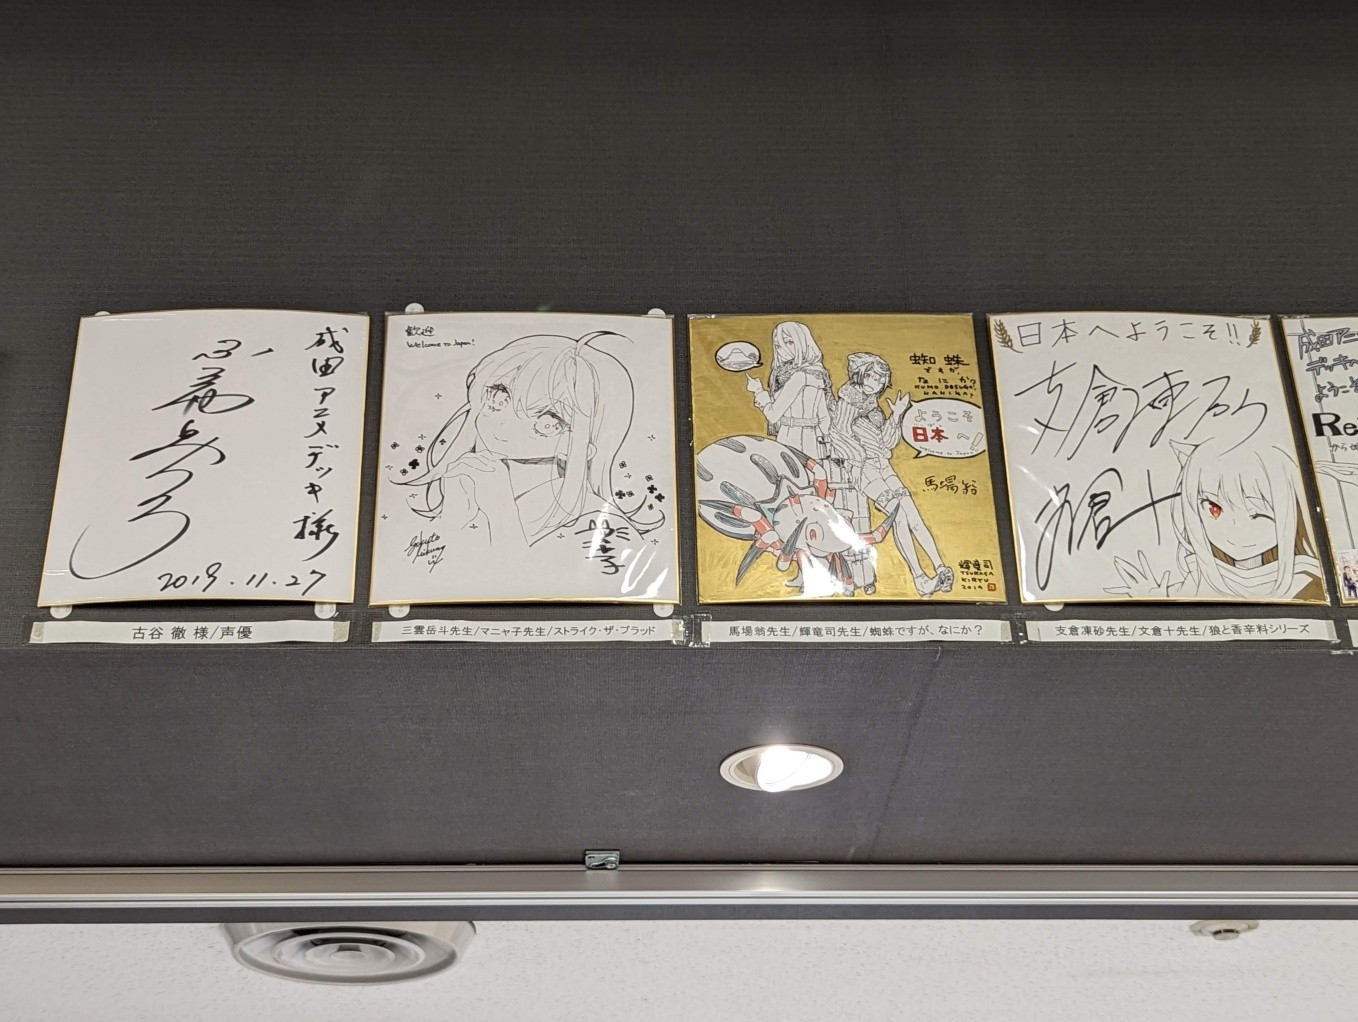 成田アニメデッキ様
2019.11.27
古谷 徹 様/声優
歓迎
Welcome to Japan!
マニャ子
三雲岳斗先生/マニャ子先生/ストライク・ザ・ブラッド
蜘蛛
ですが
なにか?
KUMO DESUGA,
NANIKA?
ようこそ
日本へ!
Welcome to Japan!
馬場翁
輝竜司
TSUKASA
KIRYU
2019
馬場翁先生/輝竜司先生/蜘蛛ですが、なにか?
日本へようこそ!!
支倉凍砂
文倉十
支倉凍砂先生/文倉十先生/狼と香辛料シリーズ
成田アニ
デッキ
ようこそ
Re
から